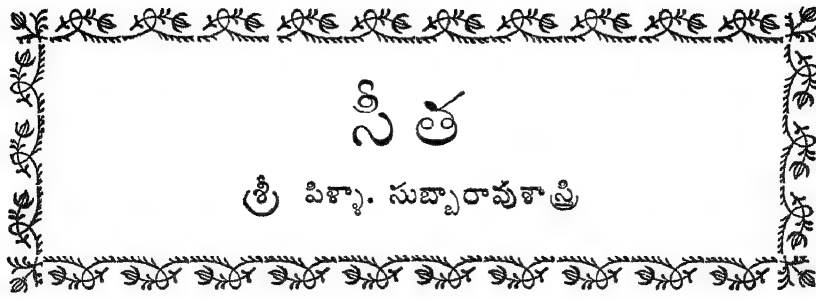 సీత
శ్రీ పిళ్ళా. సుబ్బారావుశాస్త్రి